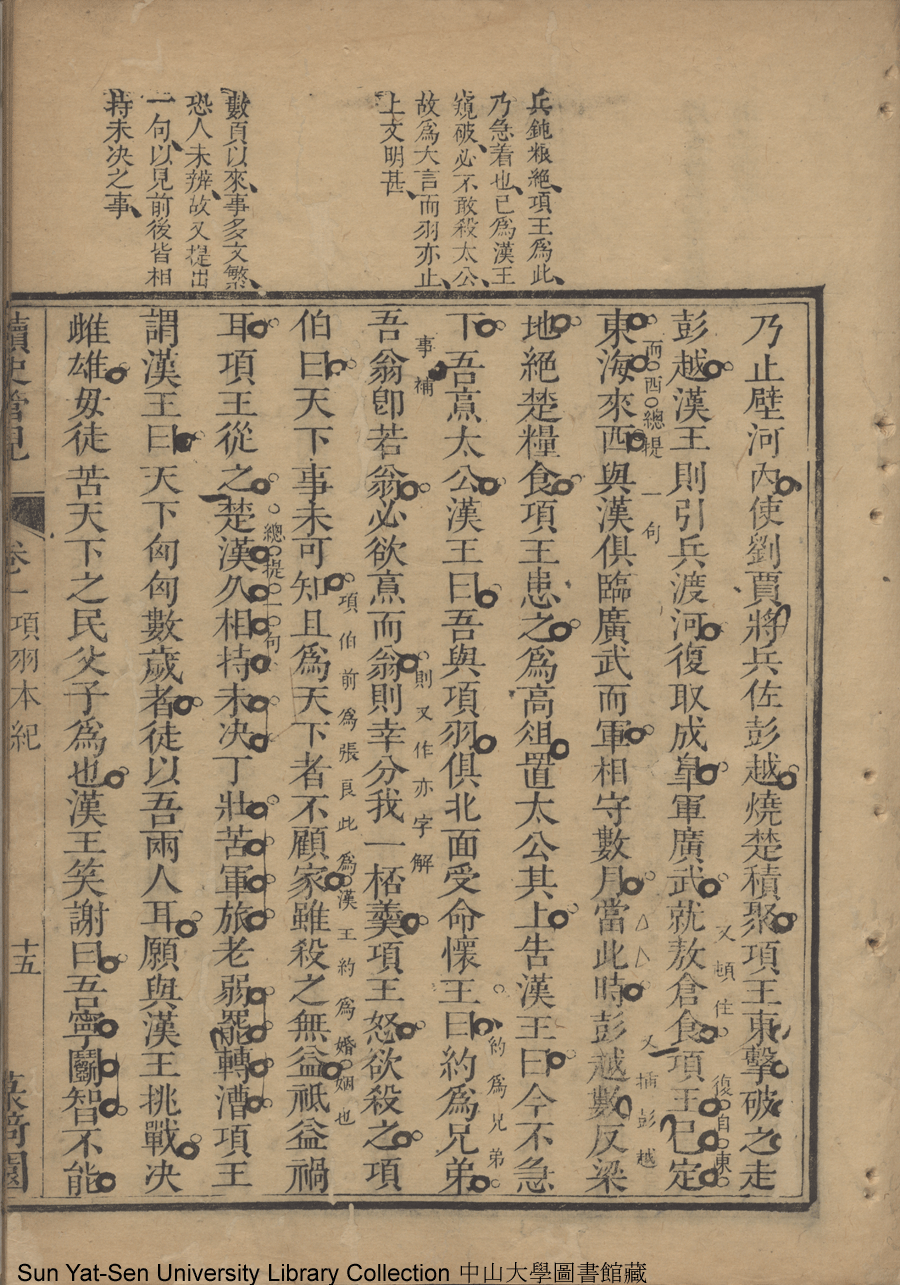 兵鈍粮絶項王爲此
乃急着也已爲漢王
窺破必不敢殺太公
故爲大言而羽亦止
上文明甚
數頁以來事多文繁
恐人未辨故又提出
一句以見前後皆相
持未决之事
乃止壁河內使劉賈將兵佐彭越燒楚積聚項王東擊破之走
又頓住
復自東
彭越漢王則引兵渡河復取成臯軍廣武就敖倉食項王已定
而西總提一句
又插彭越
東海來西與漢俱臨廣武而軍相守數月當此時彭越數反梁
地絕楚糧食項王患之爲高俎置太公其上告漢王曰今不急
約爲兄弟
下吾烹太公漢王曰吾與項羽俱北面受命懷王曰約爲兄弟
事補
則又作亦字解
吾翁卽若翁必欲烹而翁則幸分我一桮羹項王怒欲殺之項
項伯前爲張良此爲漢王約爲婚姻也
伯曰天下事未可知且爲天下者不顧家雖殺之無益祗益禍
總提一句
耳項王從之楚漢久相持未决丁壯苦軍旅老弱罷轉漕項王
謂漢王曰天下匈匈數歲者徒以吾兩人耳願與漢王挑戰决
雌雄毋徒苦天下之民父子爲也漢王笑謝曰吾寧鬭智不能
讀史管見
卷之一
項羽本紀
十五
園
Sun Yat-Sen University Library Collection 中山大學圖書館藏